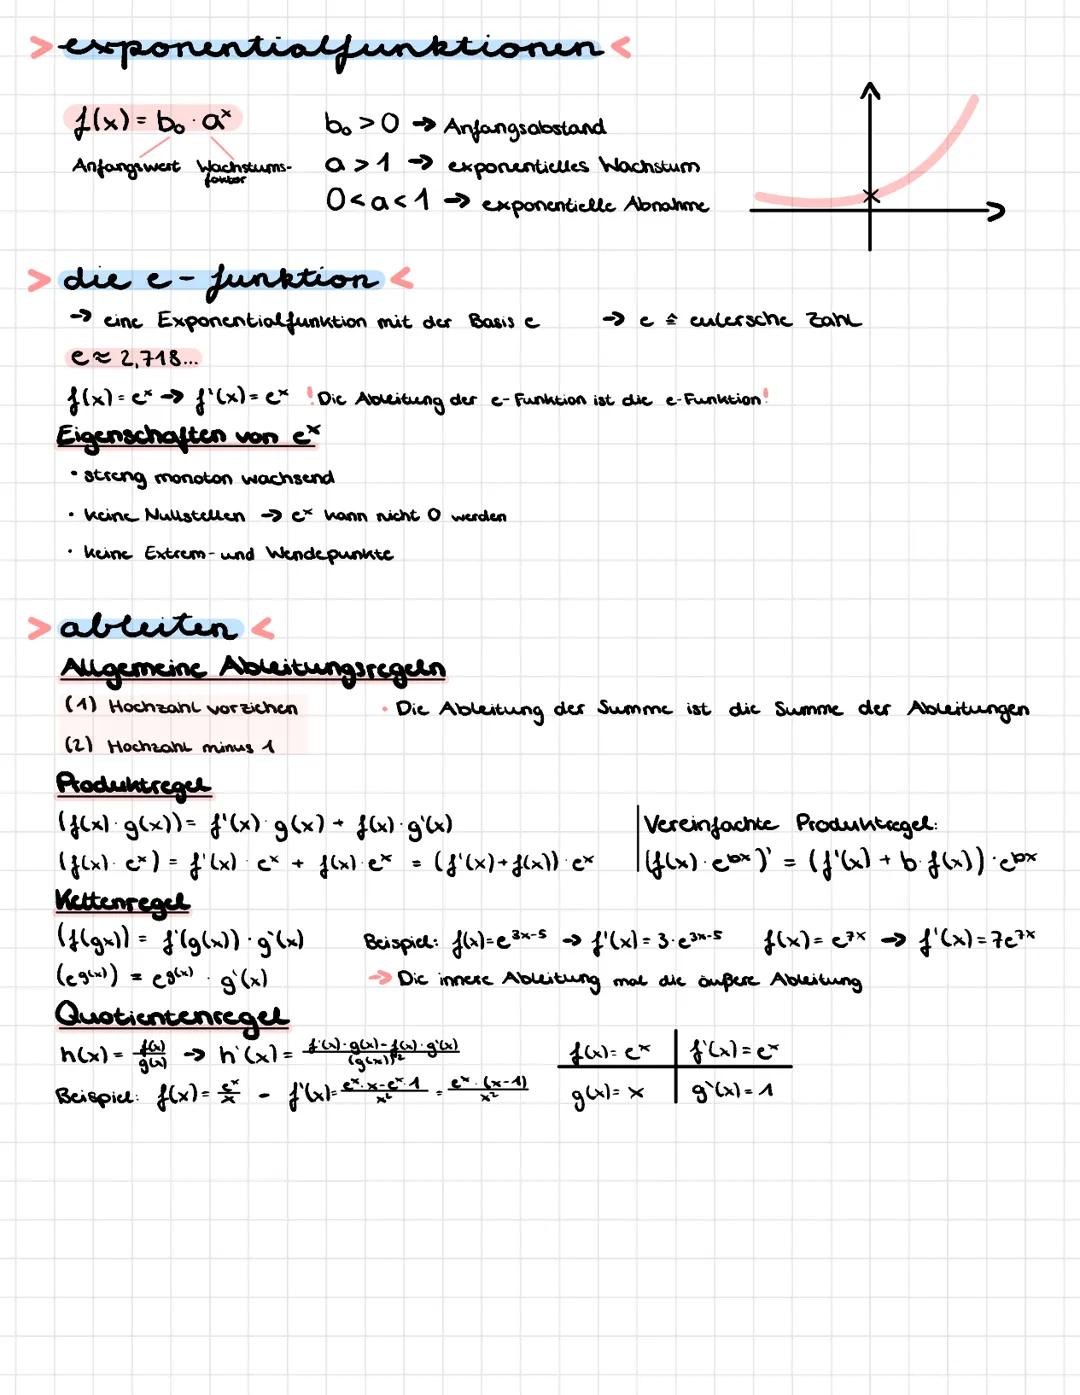 > exponentialfunktionen <
f(x) = b₀ · aˣ
Anfangswert Wachstums-
faktor
b₀ > 0 → Anfangsabstand
a > 1 → exponentielles Wachstum
0 < a < 1 → exponentielle Abnahme
> die e - funktion <
→ eine Exponentialfunktion mit der Basis e → e ≙ eulersche Zahl
e ≈ 2,718...
f(x) = eˣ → f'(x) = eˣ ! Die Ableitung der e-Funktion ist die e-Funktion!
Eigenschaften von eˣ
• streng monoton wachsend
• keine Nullstellen → eˣ kann nicht 0 werden
• keine Extrem- und Wendepunkte
> ableiten <
Allgemeine Ableitungsregeln
(1) Hochzahl vorziehen • Die Ableitung der Summe ist die Summe der Ableitungen
(2) Hochzahl minus 1
Produktregel
(f(x) · g(x)) = f'(x) · g(x) + f(x) · g'(x)
(f(x) · eˣ) = f'(x) · eˣ + f(x) · eˣ = (f'(x) + f(x)) · eˣ
Vereinfachte Produktregel:
(f(x) · e^bx)' = (f'(x) + b · f(x)) · e^bx
Kettenregel
(f(gx)) = f'(g(x)) · g'(x) Beispiel: f(x) = e^3x-5 → f'(x) = 3 · e^3x-5 f(x) = e^7x → f'(x) = 7e^7x
(e^g(x)) = e^g(x) · g'(x) → Die innere Ableitung mal die äußere Ableitung
Quotientenregel
h(x) = f(x)/g(x) → h'(x) = f'(x) · g(x) - f(x) · g'(x)/(g(x))²
Beispiel: f(x) = eˣ/x - f'(x) = eˣ · x - eˣ · 1/x² = eˣ · (x-1)/x²
f(x) = eˣ f'(x) = eˣ
g(x) = x g'(x) = 1